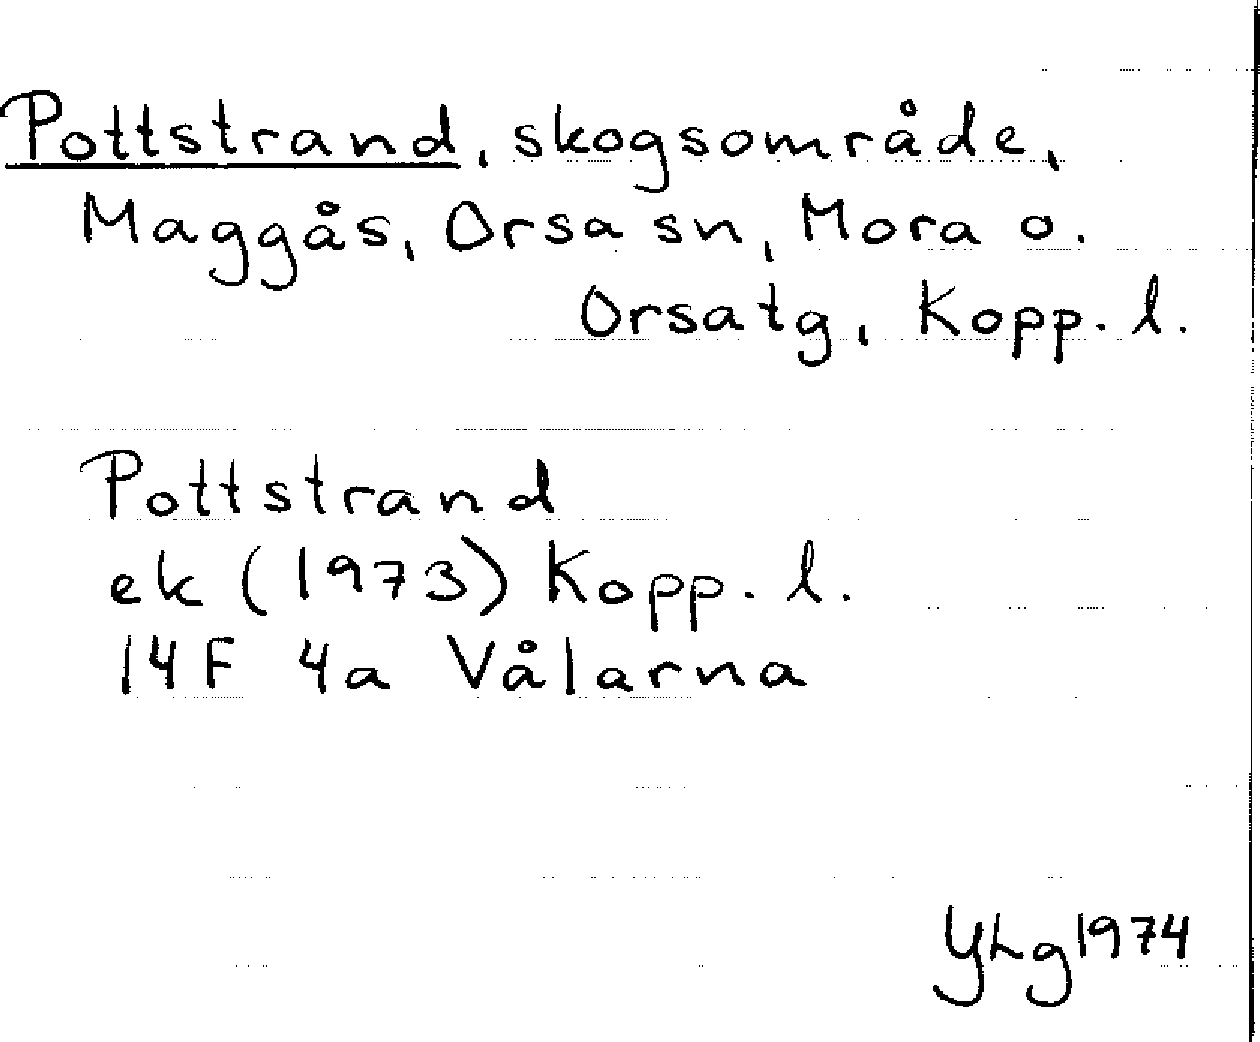 Pottstrand, skogsområde,
Maggås, Orsa sn, Mora o.
Orsatg, Kopp. l.
Pottstrand
ek (1973) Kopp. l.
14F 4a Vålarna
YLg 1974